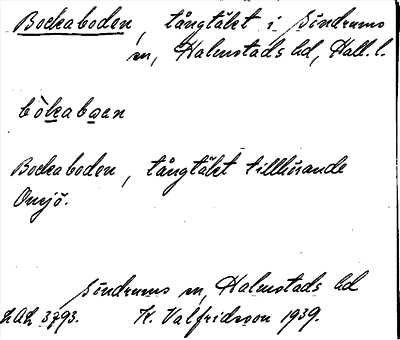 Bockaboden, tångtäkt i Söndrums
sn, Halmstads hd, Hall. l.
bòkabɷen
Bockaboden, tångtäkt tillhörande
Onsjö.
Söndrums sn, Halmstads hd
LAL 3793. K. Valfridsson 1939.